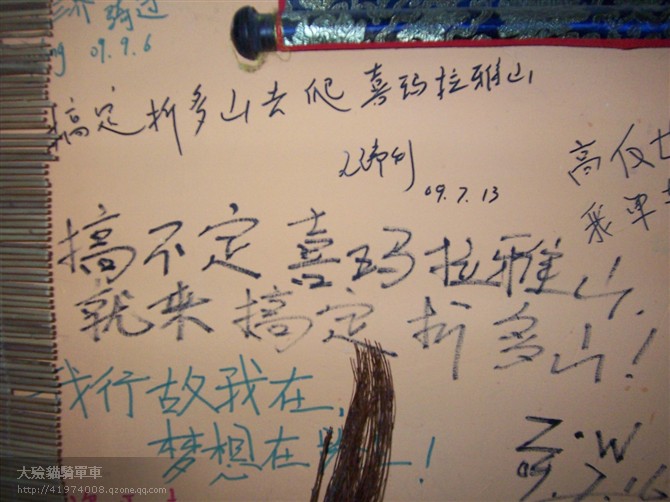 09.9.6
搞定折多山去爬喜玛拉雅山
09.7.13
高仪
搞不定喜玛拉雅山,
就来搞定折多山!
我行故我在,
梦想在 !
Z·W
09.7.16
大殮貓騎單車
http://41974008.qzone.qq.com